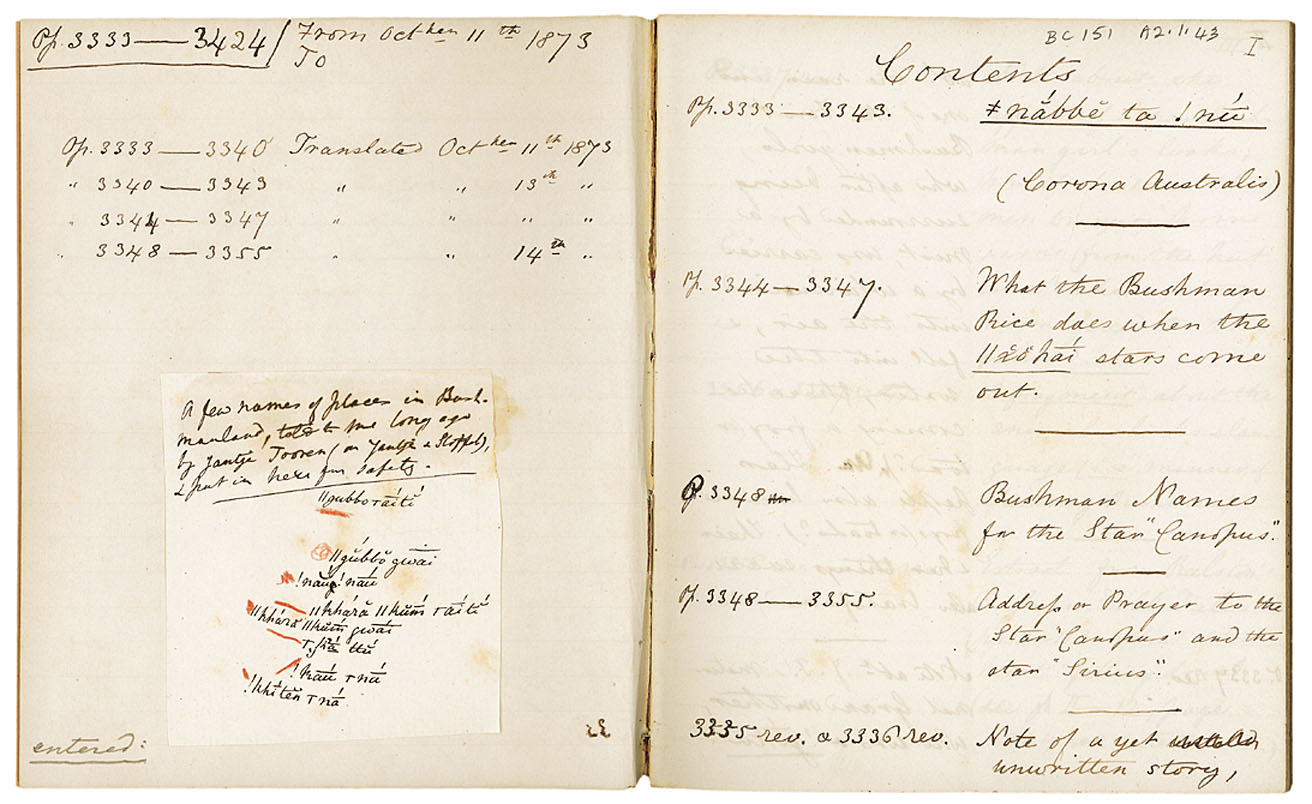 Pp. 3333 — 3424 / From Octber 11th 1873
To
Pp. 3333 — 3340 Translated Octber 11th 1873
" 3340 — 3343 " " 13th "
" 3344 — 3347 " " " "
" 3348 — 3355 " " 14th "
A few names of places in Bush-
manland, told to me long ago
by Jantje Tooren (or Jantje & Stoffel),
& put in here for safety.
ǁgŭbbo
ǁgŭbbŏ gwāi
ǁkháră ǁkŭḿ
ǁkháră ǁkŭḿ gwāi
entered:
BC 151 A2.1.43
I
Contents
Pp. 3333 — 3343. ǂnábbĕ ta !nú
(Corona Australis)
Pp. 3344 — 3347. What the Bushman
Rice does when the
stars come
out.
P. 3348 Bushman Names
for the Star "Canopus".
Pp. 3348 — 3355. Address or Prayer to the
Star "Canopus" and the
star "Sirius".
3335 rev. & 3336 rev. Note of a yet
unwritten story,